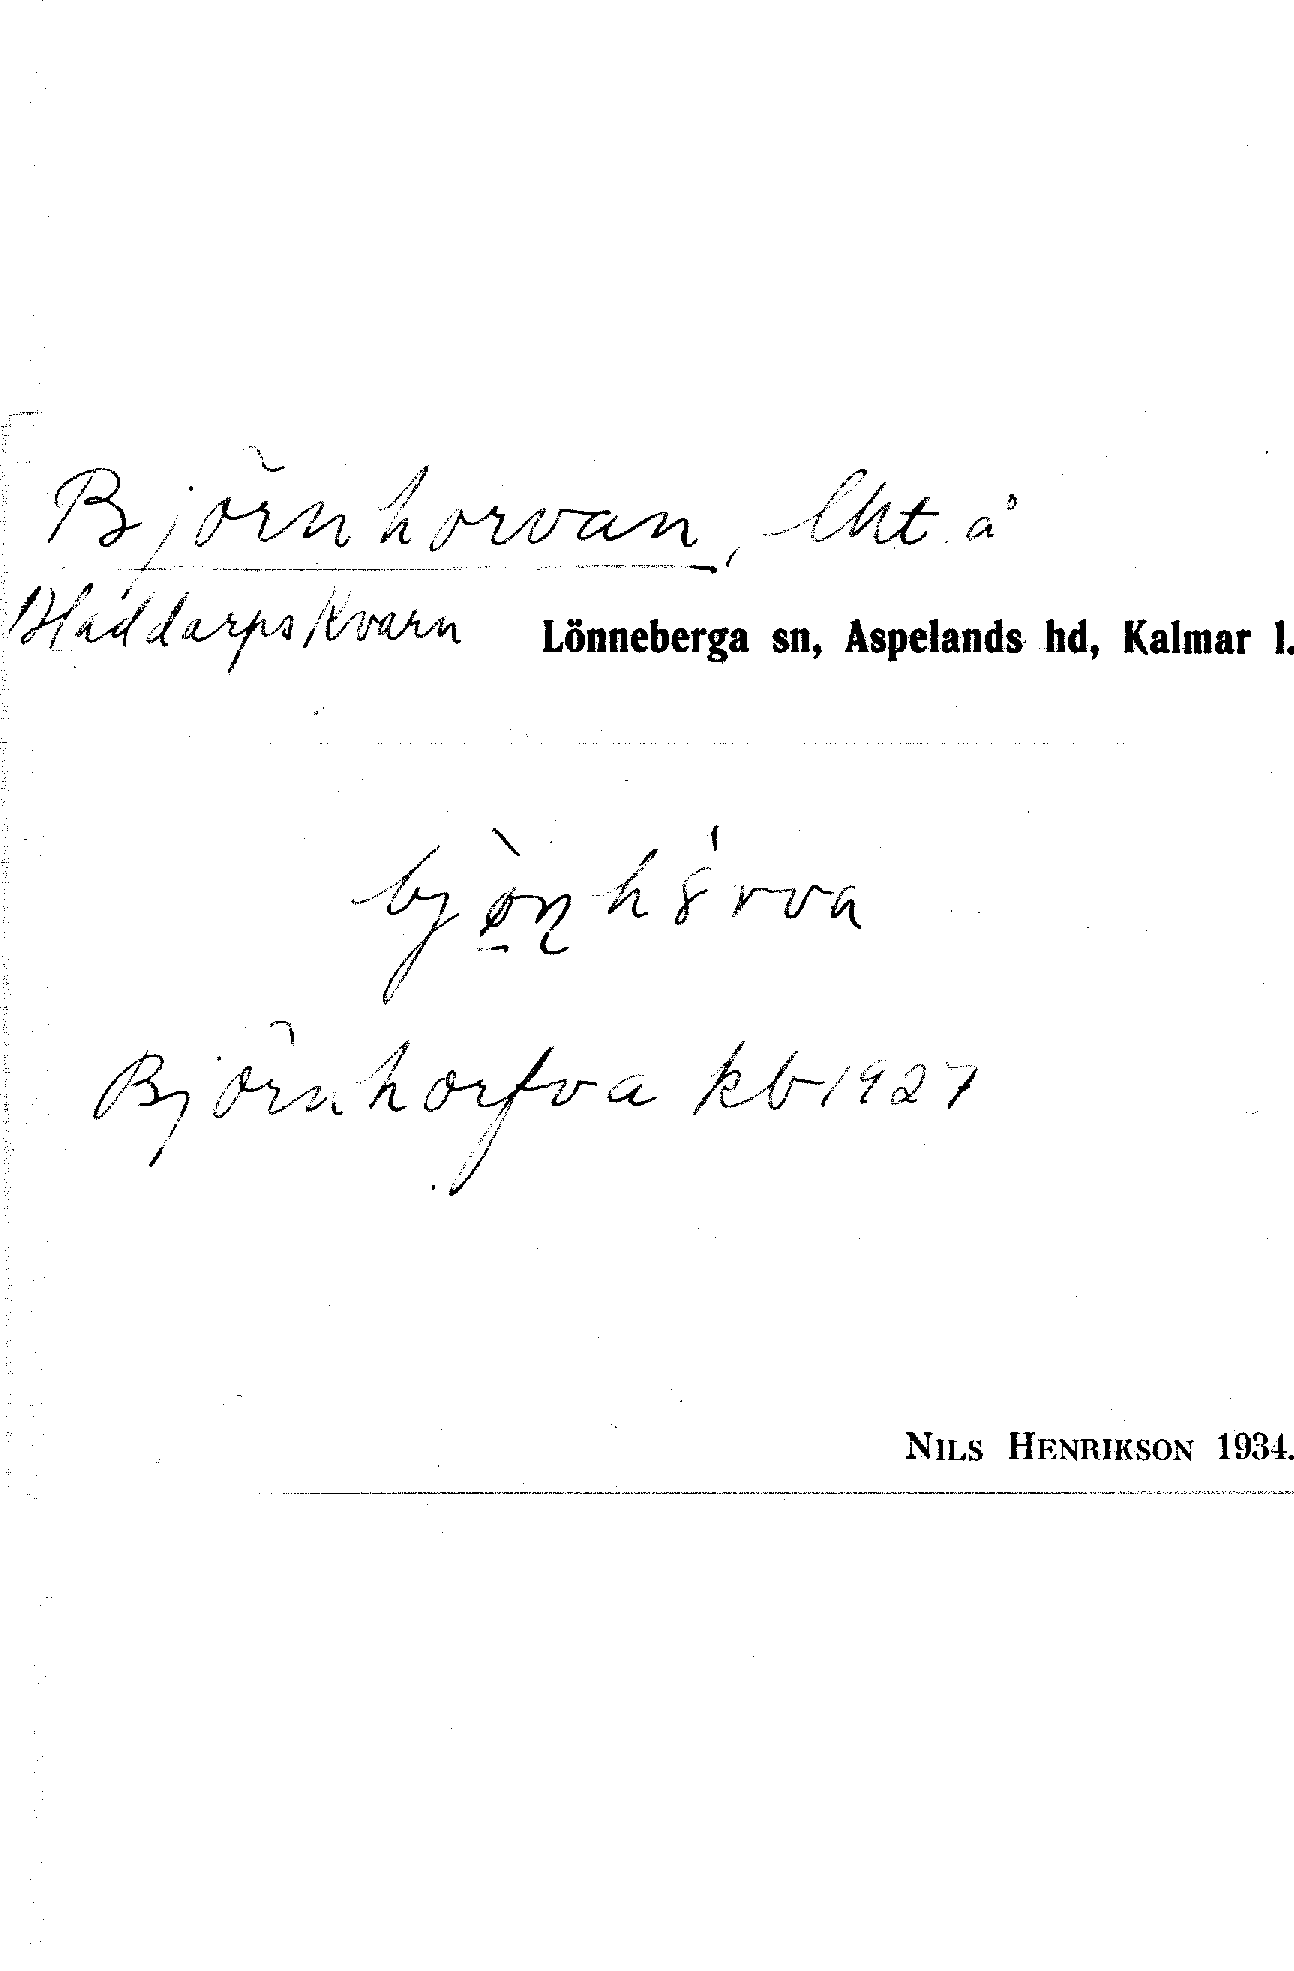 Björnhorvan, lht. å
Bladdarps Kvarn Lönneberga sn, Aspelands hd, Kalmar l.
Björnhorfva kb 1927
NILS HENRIKSON 1934.